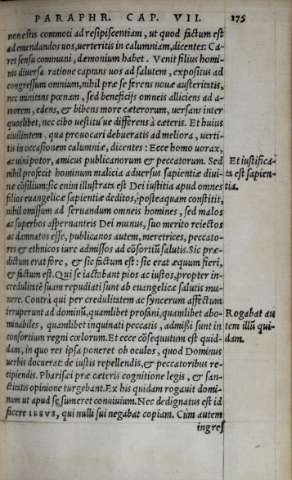 PARAPHR. CAP. VII. 175
nonestis commoti ad resipiscentiam, ut quod fictum est
ad emendandos uos, uerteritis in calumniam, dicentes: Ca-
ret sensu communi, dæmonium habet. Venit filius homi-
nis diuersa ratione captans uos ad salutem, expositus ad
congressum omnium, nihil præ se ferens nouæ austeritatis,
nec minitans pœnam, sed beneficijs omneis alliciens ad a-
morem, edens, & bibens more cæterorum, uersans inter
quoslibet, nec cibo uestitúue differens à cæteris. Et huius
ciuilitatem, qua prouocari debueratis ad meliora, uerti-
tis in occasionem calumniæ, dicentes: Ecce homo uorax,
ac uini potor, amicus publicanorum & peccatorum. Sed
nihil profecit hominum malicia aduersus sapientiæ diui-
næ cōsiliū: sic enim illustrata est Dei iustitia apud omnes
filios euangelicæ sapientiæ deditos, posteaquam constitit,
nihil omissum ad seruandum omneis homines, sed malos
ac superbos aspernanteis Dei munus, suo merito reiectos
ac damnatos esse, publicanos autem, meretrices, peccato-
res & ethnicos iure admissos ad cōsortiū salutis. Sic præ-
dictum erat fore, & sic factum est: sic erat æquum fieri,
& factum est. Qui se iactabant pios ac iustos, propter in-
credulitatē suam repudiati sunt ab euangelicæ salutis mu-
nere. Contrà qui per credulitatem ac syncerum affectum
irruperunt ad dominū, quamlibet profani, quamlibet abo-
minabiles, quamlibet inquinati peccatis, admissi sunt in
consortium regni cœlorum. Et ecce cōsequutum est quid-
dam, in quo res ipsa poneret ob oculos, quod Dominus
uerbis docuerat: de iustis repellendis, & peccatoribus re-
cipiendis. Pharisæi præ cæteris cognitione legis, & san-
ctitatis opinione turgebant. Ex his quidam rogauit domi-
num ut apud se sumeret conuiuium. Nec dedignatus est id
facere IESVS, qui nulli sui negabat copiam. Cùm autem
ingres
Et iustifica-
ta est sapien-
tia.
Rogabat au
tem illū qui-
dam.